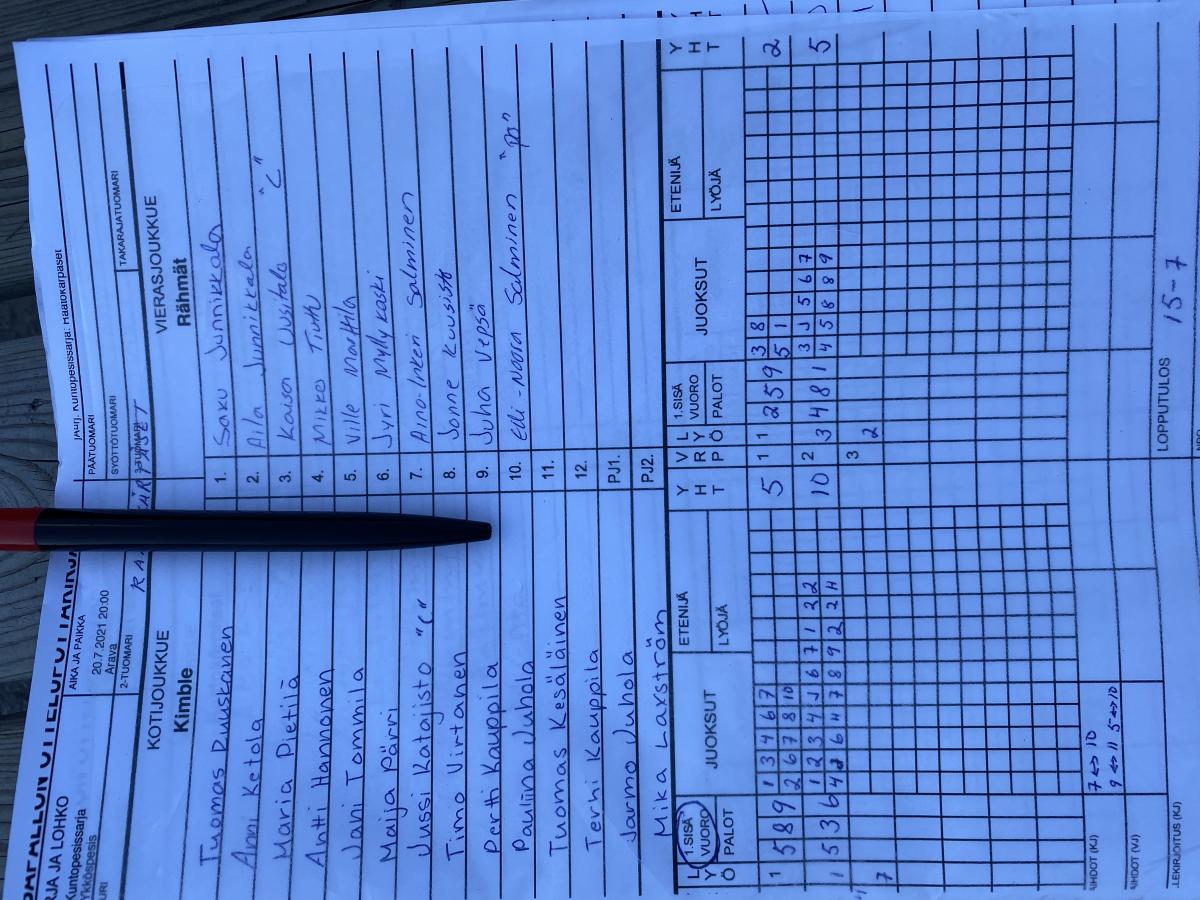 AIKA JA PAIKKA
20.7.2021 20:00
Arava
2-TUOMARI
PÄÄTUOMARI
SYÖTTÖTUOMARI
TAKARAJATUOMARI
RJA JA LOHKO
Kuntopesissarja
Ykköspesis
KOTIJOUKKUE
Kimble
VIERASJOUKKUE
Rähmät
Tuomas Puuskanen
Anni Ketola
Maria Pietilä
Antti Hannonen
Jani Tommila
Maija Pärri
Jussi Katajisto "C"
Timo Virtanen
Pertti Kauppila
Pauliina Juhola
Tuomas Kesäläinen
Terhi Kauppila
Jarmo Juhola
Mika Laxström
1. Saku Junnikkala
2. Aila Junnikkala
3. Kaisa Uusitalo "C"
4. Mikko Tiuttu
5. Ville Marttila
6. Jyri Myllykaski
7. Aino-Inkeri Salminen
8. Sonne Kuusisto
9. Juha Vepsä
10. Elli-Noora Salminen
11.
12.
PJ1.
PJ2.
L Y Ö
1.SISÄ VUORO
PALOT
JUOKSUT
ETENIJÄ
LYÖJÄ
Y H T
V R P
L Y Ö
1.SISÄ VUORO
PALOT
JUOKSUT
ETENIJÄ
LYÖJÄ
Y H T
1 5 8 9 1 3 4 6 7 5 1 1 2 5 9 3 8 2
2 6 7 8 10 5 1
1 5 3 6 10 2 3 4 8 1 3 3 5 6 7 5
4 5 8 8 9
7 3 2
7 ↔ 10
9 ↔ 11 5 ↔ 10
LOPPUTULOS 15 - 7